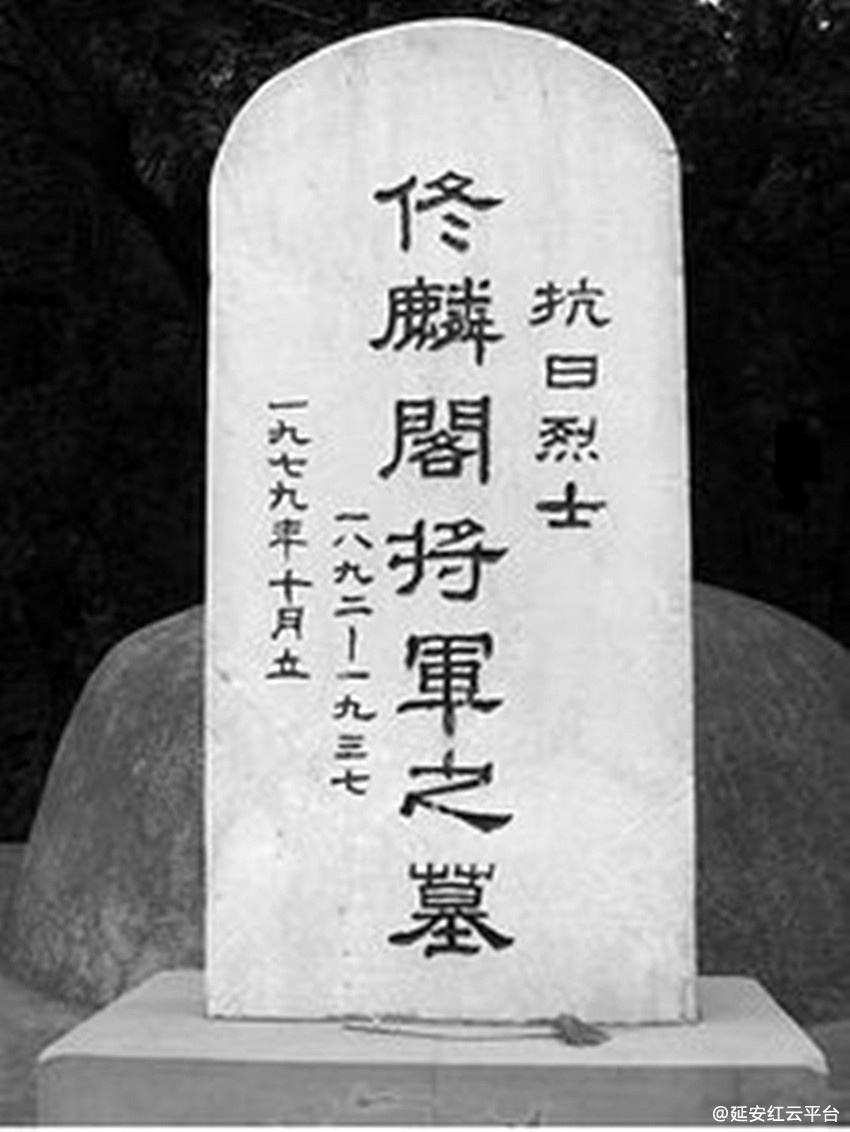 抗日烈士
佟麟閣将軍之墓
一八九二—一九三七
一九七九年十月立
@延安红云平台